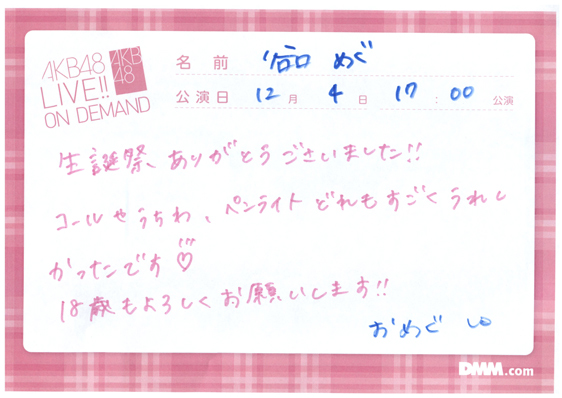 AKB48
LIVE!!
ON DEMAND
AKB
48
名前 谷口 めぐ
公演日 12月 4日 17:00 公演
生誕祭、ありがとうございました!!
コールやうちわ、ペンライトどれもすごくうれし
かったです♡
18歳もよろしくお願いします!!
おめぐ
DMM.com